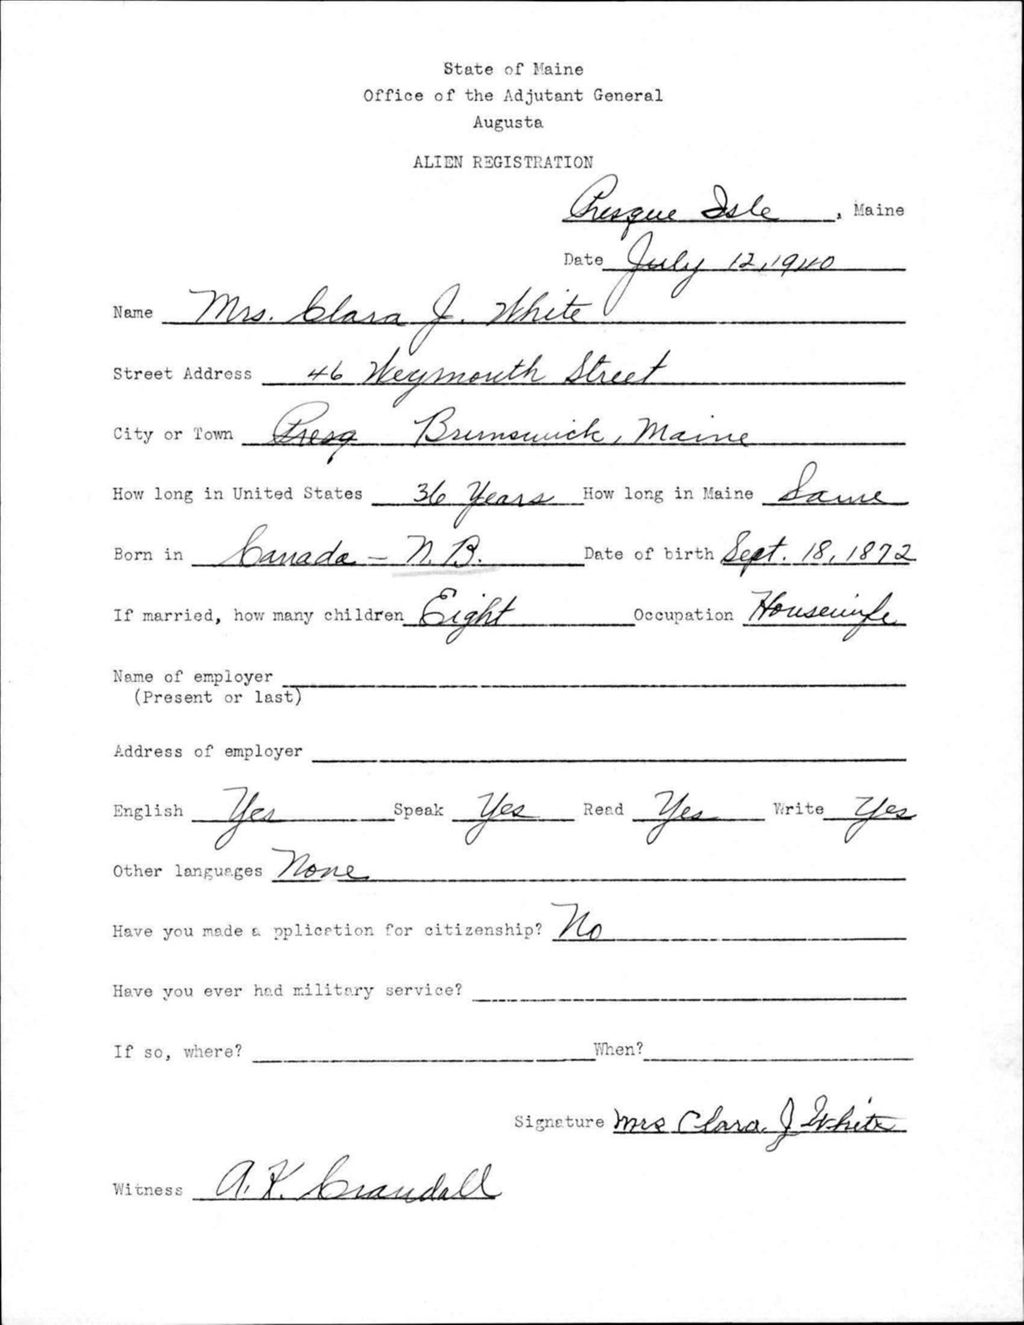 State of Maine
Office of the Adjutant General
Augusta
ALIEN REGISTRATION
Presque Isle, Maine
Date July 12, 1940
Name Mrs. Clara J. White
Street Address 46 Weymouth Street
City or Town Presq Brunswick, Maine
How long in United States 36 Years How long in Maine Same
Born in Canada - N.B. Date of birth Sept. 18, 1872
If married, how many children Eight Occupation Housewife
Name of employer
(Present or last)
Address of employer
English Yes Speak Yes Read Yes Write Yes
Other languages None
Have you made a pplication for citizenship? No
Have you ever had military service?
If so, where? When?
Signature Mrs Clara. J White
Witness A. K. Crandall